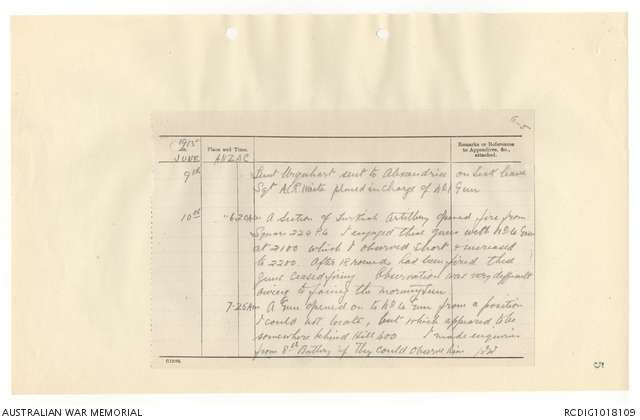 1915
JUNE
Place and Time.
ANZAC
Remarks or References
to Appendices, &c.,
attached.
9th Lieut Urquhart sent to Alexandria on Sick leave
Sgt A.R. Waite placed in charge of No 1 Gun
10th 6-20 Am A Section of Turkish Artillery opened fire from
Square 224 I engaged these guns with No 4 Gun
at 2100 which I observed Short & increased
to 2200. After 18 rounds had been fired these
guns ceased firing Observation was very difficult
owing to facing the morning sun
7-25 Am A Gun opened on to No 4 Gun from a position
I could not locate, but which appeared to be
somewhere behind Hill 400 I made enquiries
from 8th Battery if they could observe him
AUSTRALIAN WAR MEMORIAL
RCDIG1018109